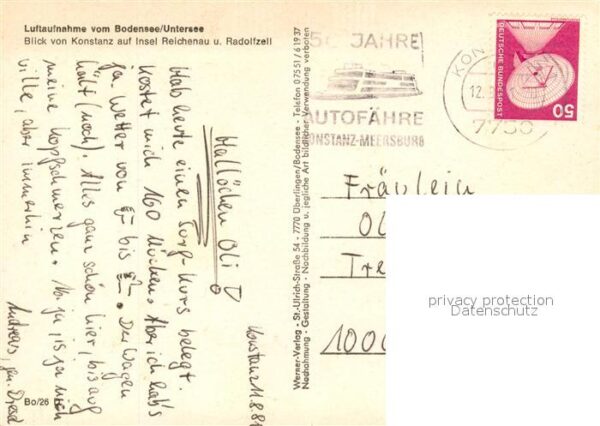 Luftaufnahme vom Bodensee/Untersee
Blick von Konstanz auf Insel Reichenau u. Radolfzell
Konstanz 11.8.81
Hallöchen Oli!
Hab heute einen Surf-Kurs belegt.
Kostet mich 160 Mücken. Aber ich hab's
ja. Wetter von bis . Der Wagen
hält (noch). Alles ganz schön hier, bis auf
meine Kopfschmerzen. Na ja, is ja nich
viel, aber immerhin
Andreas, gen.
Bo/26
Werner-Verlag · St.-Ulrich-Straße 54 · 7770 Überlingen/Bodensee · Telefon 07551/61937
Nachahmung · Gestaltung · Nachbildung u. jegliche Art bildlicher Verwendung verboten
50 JAHRE
AUTOFÄHRE
KONSTANZ-MEERSBURG
KON
12.
7750
DEUTSCHE BUNDESPOST
50
Fräulein
Ol
Tre
1000
privacy protection
Datenschutz